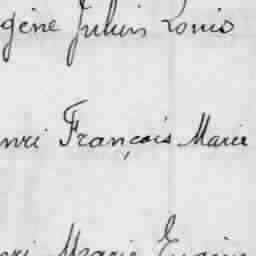 gène Julien Louis
nri François Marie
nri Marie Eugène